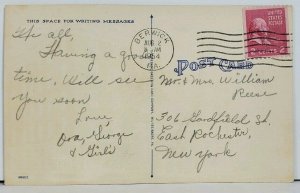 THIS SPACE FOR WRITING MESSAGES
Hi all,
Having a good
time. Will see
you soon
Love,
Ora, George
& Girls
BERWICK
AUG 2
1954
POST CARD
UNITED STATES POSTAGE
2 CENTS 2
Mr & Mrs William
Reese
306 Garfield St,
East Rochester,
New York